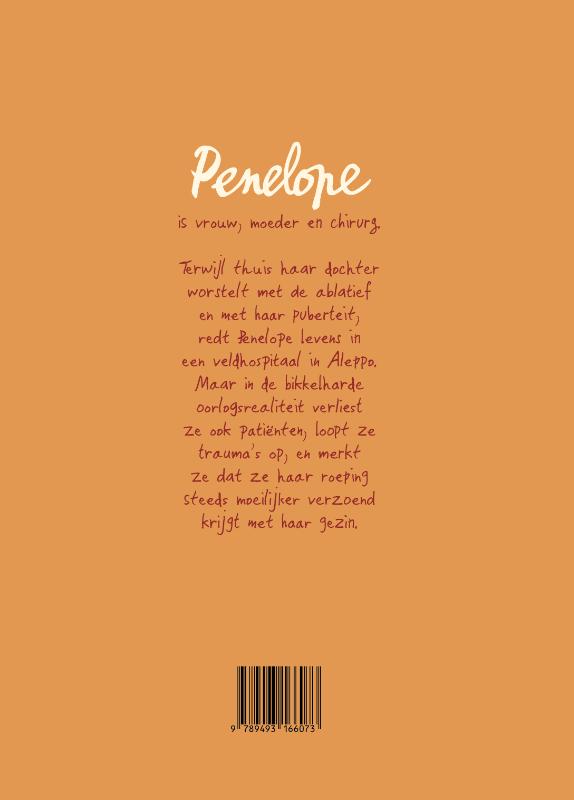 Penelope
is vrouw, moeder en chirurg.
Terwijl thuis haar dochter
worstelt met de ablatief
en met haar puberteit,
redt Penelope levens in
een veldhospitaal in Aleppo.
Maar in de bikkelharde
oorlogsrealiteit verliest
ze ook patiënten, loopt ze
trauma's op, en merkt
ze dat ze haar roeping
steeds moeilijker verzoend
krijgt met haar gezin.
9 789493 166073